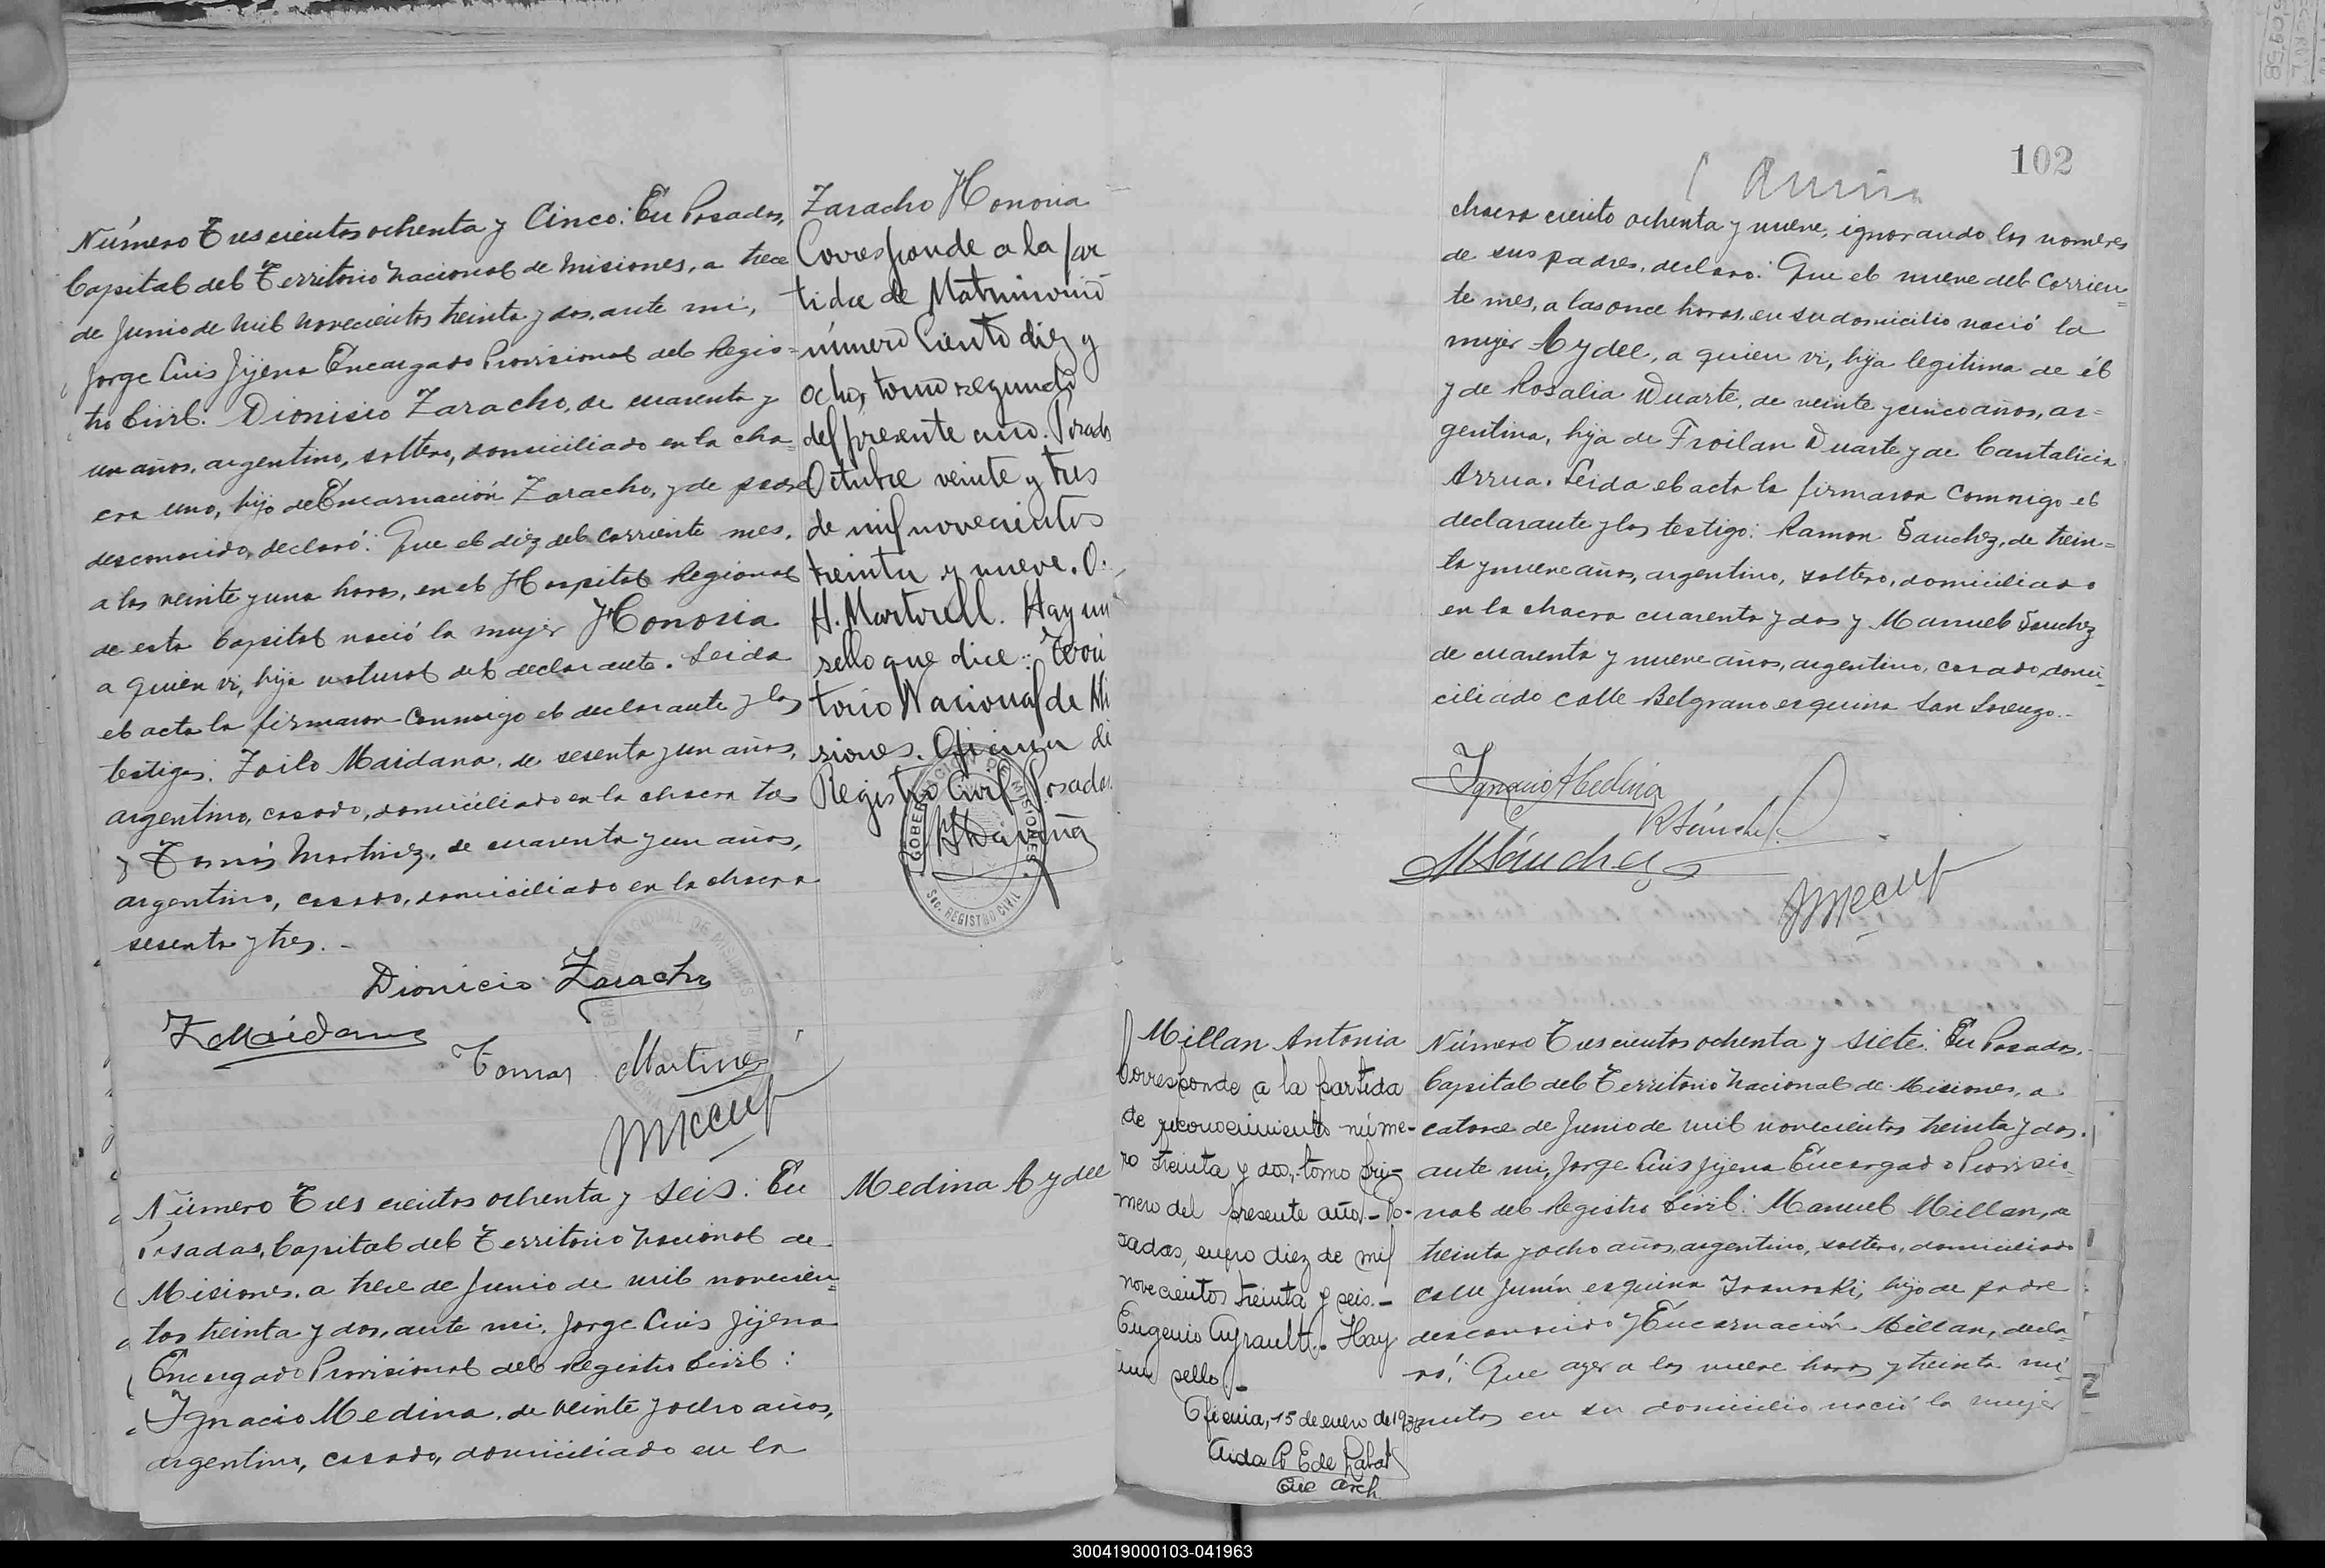 Número Trescientos ochenta y Cinco: En Posadas,
Capital del Territorio Nacional de Misiones, a trece
de Junio de mil novecientos treinta y dos, ante mi,
Jorge Luis Jijena Encargado Provisional del Regis=
tro Civil: Dionisio Zaracho, de cuarenta y
un años, argentino, soltero, domiciliado en la cha=
cra uno, hijo de Encarnación Zaracho, y de padre
desconocido, declaró: Que el diez del corriente mes,
a las veinte y una horas, en el Hospital Regional
de esta Capital nació la mujer Honoria
a quien vi, hija natural del declarante. Leida
el acta la firmaron conmigo el declarante y los
testigos: Zoilo Maidana, de sesenta y un años,
argentino, casado, domiciliado en la chacra tres
y Tomás Martinez, de cuarenta y un años,
argentino, casado, domiciliado en la chacra
sesenta y tres.-
Dionicio Zaracho
Z Maidana
Tomas Martinez
Zaracho Honoria
Corresponde a la par
tida de Matrimonio
número Ciento diez y
ocho, tomo segundo
del presente año. Posadas
Octubre veinte y tres
de mil novecientos
treinta y nueve. O.
H. Martorell. Hay un
sello que dice: Terri
torio Nacional de Mi
siones. Oficina de
Registro Civil Posadas
GOBERNACION DE MISIONES
Sec. REGISTRO CIVIL
Número Tres cientos ochenta y seis: En
Posadas, Capital del Territorio Nacional de
Misiones, a trece de Junio de mil novecien=
tos treinta y dos, ante mi, Jorge Luis Jijena
Encargado Provisional del Registro Civil:
Ignacio Medina, de veinte y ocho años,
argentino, casado, domiciliado en la
Medina Aydee
102
chacra ciento ochenta y nueve, ignorando los nombres
de sus padres, declaro: Que el nueve del corrien=
te mes, a las once horas, en su domicilio nació la
mujer Aydee, a quien vi, hija legitima de él
y de Rosalia Duarte, de veinte y cinco años, ar=
gentina, hija de Froilan Duarte y de Cantalicia
Arrua. Leida el acta la firmaron conmigo el
declarante y los testigo: Ramon Sanchez, de trein=
ta y nueve años, argentino, soltero, domiciliado
en la chacra cuarenta y dos y Manuel Sanchez
de cuarenta y nueve años, argentino, casado, domi=
ciliado calle Belgrano esquina San Lorenzo.-
Ignacio Medina
R Sánchez
M Sánchez
Millan Antonia
Corresponde a la partida
de reconocimiento núme-
ro treinta y dos, tomo pri-
mero del presente año.- Po-
sadas, enero diez de mil
novecientos treinta y seis.-
Eugenio Ayrault.- Hay
un sello.-
Oficina, 15 de enero de 1936
Aida P E de Rabat
Enc Arch
Número Trescientos ochenta y siete: En Posadas,
Capital del Territorio Nacional de Misiones, a
catorce de Junio de mil novecientos treinta y dos,
ante mi, Jorge Luis Jijena Encargado Provisio=
nal del Registro Civil: Manuel Millan, de
treinta y ocho años, argentino, soltero, domiciliado
calle Junín esquina, hijo de padre
desconocido y Encarnación Millan, decla=
ró: Que ayer a las nueve horas y treinta mi=
nutos en su domicilio nació la mujer
300419000103-041963